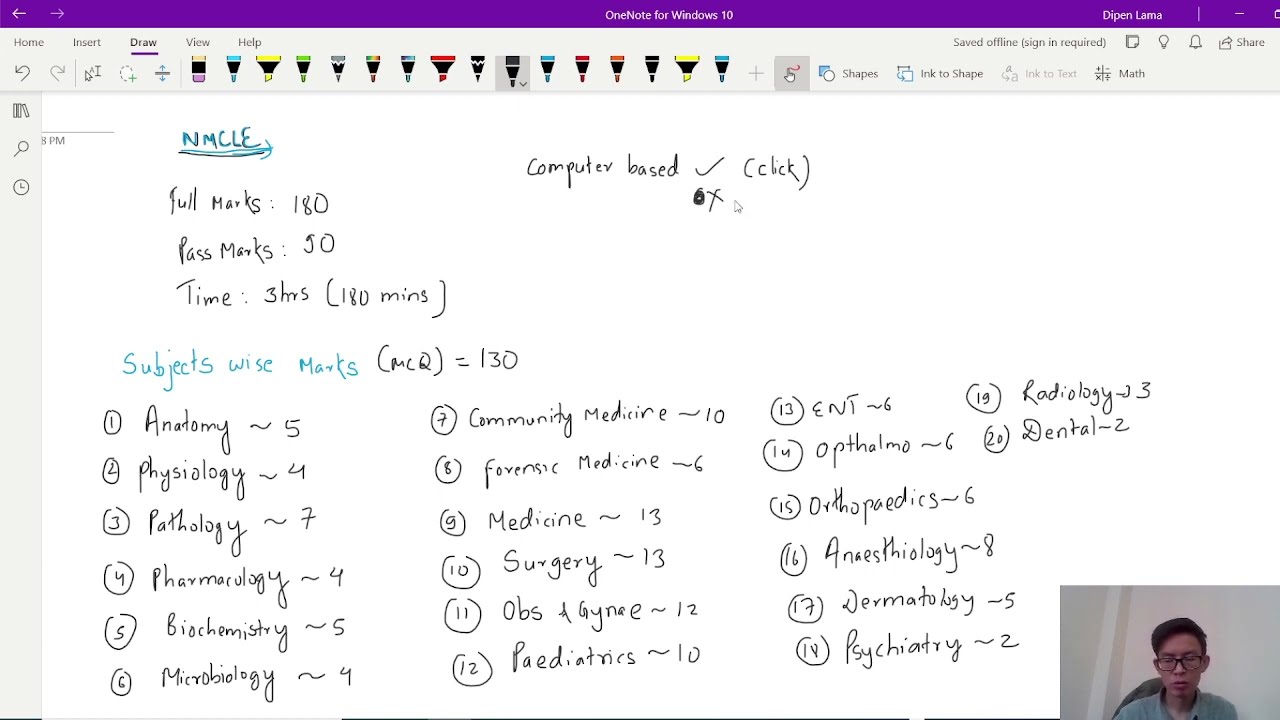 OneNote for Windows 10
Dipen Lama
Home Insert Draw View Help
Saved offline (sign in required)
Share
Shapes
Ink to Shape
Ink to Text
Math
8 PM
NMCLE
Full Marks: 180
Pass Marks: 90
Time: 3hrs (180 mins)
Computer based ✓ (click)
X
Subjects wise Marks (MCQ) = 130
① Anatomy ~ 5
② Physiology ~ 4
③ Pathology ~ 7
④ Pharmacology ~ 4
⑤ Biochemistry ~ 5
⑥ Microbiology ~ 4
⑦ Community Medicine ~ 10
⑧ Forensic Medicine ~ 6
⑨ Medicine ~ 13
⑩ Surgery ~ 13
⑪ Obs & Gynae ~ 12
⑫ Paediatrics ~ 10
⑬ ENT ~ 6
⑭ Opthalmo ~ 6
⑮ Orthopaedics ~ 6
⑯ Anaesthiology ~ 8
⑰ Dermatology ~ 5
⑱ Psychiatry ~ 2
⑲ Radiology ~ 3
⑳ Dental ~ 2